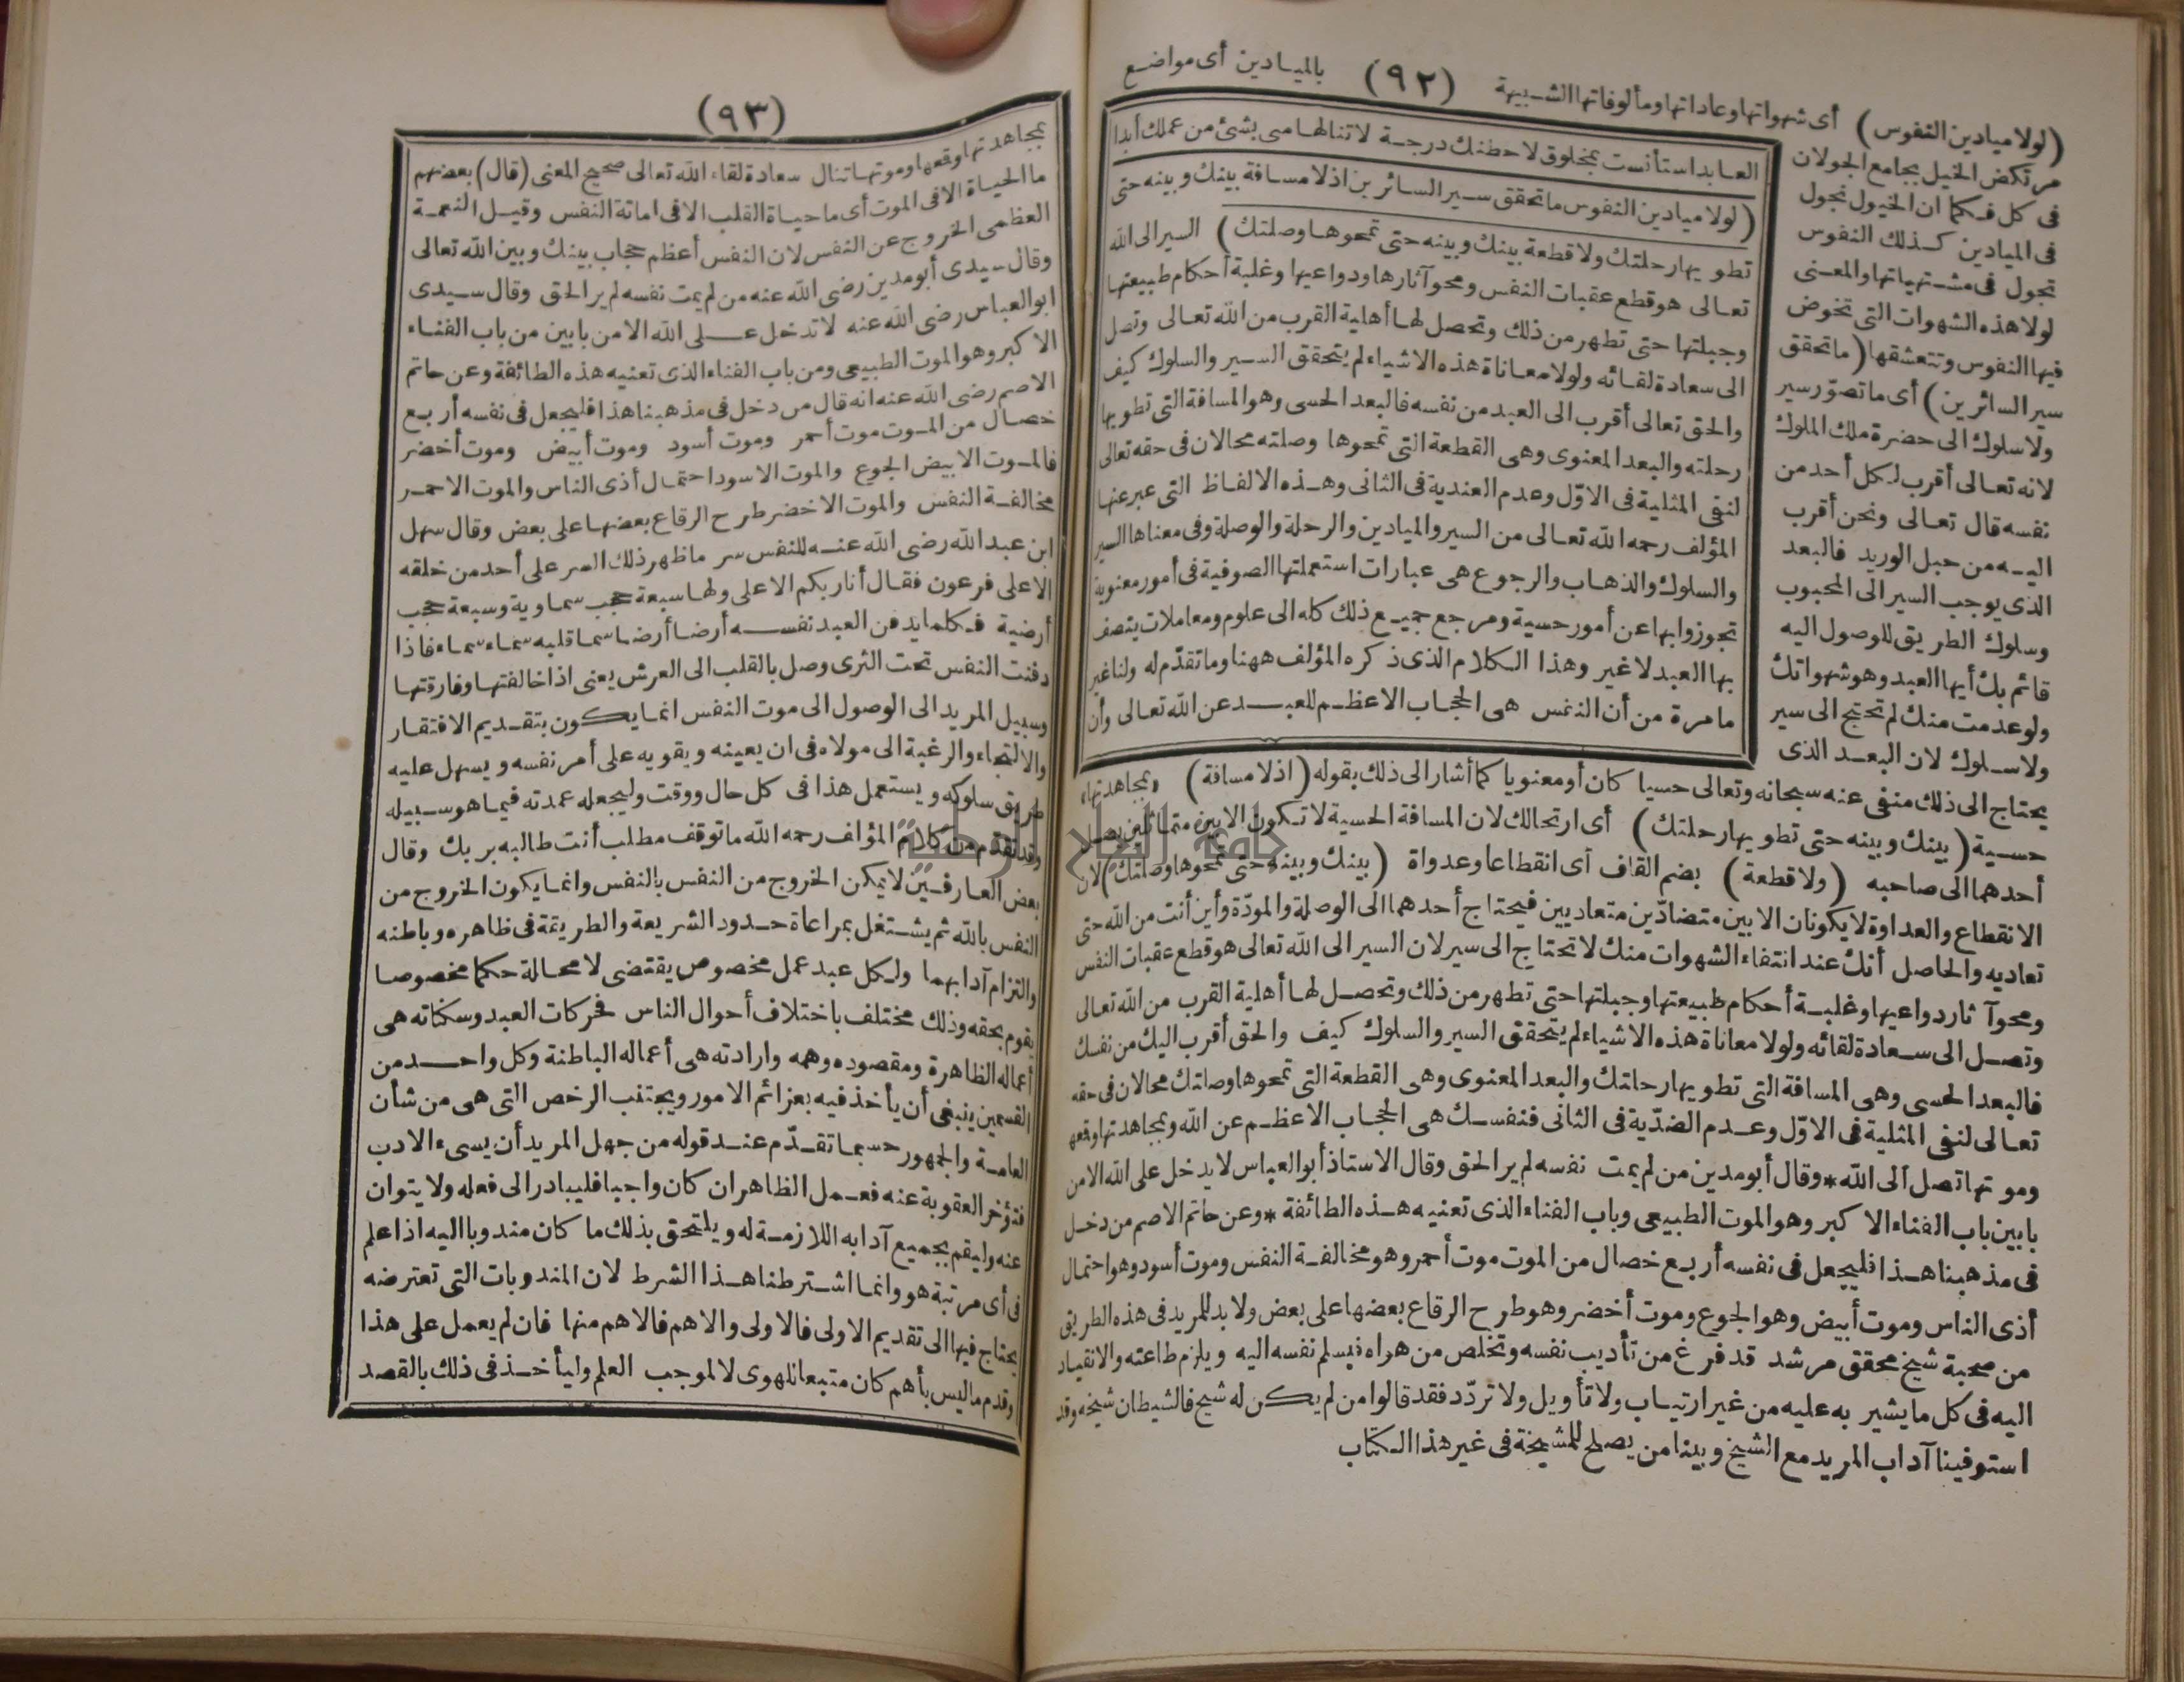 (لولا ميادين النفوس) أى شهواتها وعاداتها ومألوفاتها الشبيهة (٩٢) بالميادين أى مواضع
مرتكض الخيل بجامع الجولان
فى كل فكما ان الخيول تجول
فى الميادين كذلك النفوس
تجول فى مشتهياتها والمعنى
لولا هذه الشهوات التى تخوض
فيها النفوس وتتعشقها (ما تحقق
سير السائرين) أى ما تصوّر سير
ولا سلوك الى حضرة ملك الملوك
لانه تعالى أقرب لكل أحد من
نفسه قال تعالى ونحن أقرب
اليه من حبل الوريد فالبعد
الذى يوجب السير الى المحبوب
وسلوك الطريق للوصول اليه
قائم بك أيها العبد وهو شهواتك
ولو عدمت منك لم تحتج الى سير
ولا سلوك لان البعد الذى
العابد استأنست بمخلوق لاحظنك درجة لا تنالها منى بشئ من عملك أبدا
(لولا ميادين النفوس ما تحقق سير السائرين اذ لا مسافة بينك وبينه حتى
تطويها رحلتك ولا قطعة بينك وبينه حتى تمحوها وصلتك) السير الى الله
تعالى هو قطع عقبات النفس ومحو آثارها ودواعيها وغلبة أحكام طبيعتها
وجبلتها حتى تطهر من ذلك وتحصل لها أهلية القرب من الله تعالى وتصل
الى سعادة لقائه ولولا معاناة هذه الاشياء لم يتحقق السير والسلوك كيف
والحق تعالى أقرب الى العبد من نفسه فالبعد الحسى وهو المسافة التى تطويها
رحلته والبعد المعنوى وهى القطعة التى تمحوها وصلته محالان فى حقه تعالى
لنفى المثلية فى الاوّل وعدم العندية فى الثانى وهذه الالفاظ التى عبر عنها
المؤلف رحمه الله تعالى من السير والميادين والرحلة والوصلة وفى معناها السير
والسلوك والذهاب والرجوع هى عبارات استعملتها الصوفية فى أمور معنوية
تجوزوا بها عن أمور حسية ومرجع جميع ذلك كله الى علوم ومعاملات يتصف
بها العبد لا غير وهذا الكلام الذى ذكره المؤلف ههنا وما تقدّم له ولنا غير
ما مرة من أن النفس هى الحجاب الاعظم للعبد عن الله تعالى وأن
يحتاج الى ذلك منفى عنه سبحانه وتعالى حسيا كان أو معنويا كما أشار الى ذلك بقوله (اذ لا مسافة) بمجاهدتها
حسية (بينك وبينه حتى تطويها رحلتك) أى ارتحالك لان المسافة الحسية لا تكون الا بين متماثلين يصل
أحدهما الى صاحبه (ولا قطعة) بضم القاف أى انقطاعا وعدواة (بينك وبينه حتى تمحوها وصلتك) لان
الانقطاع والعداوة لا يكونان الا بين متضادّين متعاديين فيحتاج أحدهما الى الوصلة والمودّة وأين أنت من الله حتى
تعاديه والحاصل أنك عند انتفاء الشهوات منك لا تحتاج الى سير لان السير الى الله تعالى هو قطع عقبات النفس
ومحو آثار دواعيها وغلبة أحكام طبيعتها وجبلتها حتى تطهر من ذلك وتحصل لها أهلية القرب من الله تعالى
وتصل الى سعادة لقائه ولولا معاناة هذه الاشياء لم يتحقق السير والسلوك كيف والحق أقرب اليك من نفسك
فالبعد الحسى وهى المسافة التى تطويها رحلتك والبعد المعنوى وهى القطعة التى تمحوها وصلتك محالان فى حقه
تعالى لنفى المثلية فى الاوّل وعدم الضدّية فى الثانى فنفسك هى الحجاب الاعظم عن الله وبمجاهدتها وقمعها
وموتها تصل الى الله * وقال أبو مدين من لم يمت نفسه لم ير الحق وقال الاستاذ أبو العباس لا يدخل على الله الا من
بابين باب الفناء الاكبر وهو الموت الطبيعى وباب الفناء الذى تعنيه هذه الطائفة * وعن حاتم الاصم من دخل
فى مذهبنا هذا فليجعل فى نفسه أربع خصال من الموت موت أحمر وهو مخالفة النفس وموت أسود وهو احتمال
أذى الناس وموت أبيض وهو الجوع وموت أخضر وهو طرح الرقاع بعضها على بعض ولا بد للمريد فى هذه الطريق
من صحبة شيخ محقق مرشد قد فرغ من تأديب نفسه وتخلص من هواه فيسلم نفسه اليه ويلزم طاعته والانقياد
اليه فى كل ما يشير به عليه من غير ارتياب ولا تأويل ولا تردّد فقد قالوا من لم يكن له شيخ فالشيطان شيخه وقد
استوفينا آداب المريد مع الشيخ وبينا من يصلح للمشيخة فى غير هذا الكتاب
(٩٣)
بمجاهدتها وقمعها وموتها تنال سعادة لقاء الله تعالى صحيح المعنى (قال) بعضهم
ما الحياة الا فى الموت أى ما حياة القلب الا فى اماتة النفس وقيل النعمة
العظمى الخروج عن النفس لان النفس أعظم حجاب بينك وبين الله تعالى
وقال سيدى أبو مدين رضى الله عنه من لم يمت نفسه لم ير الحق وقال سيدى
ابو العباس رضى الله عنه لا تدخل على الله الا من بابين من باب الفناء
الاكبر وهو الموت الطبيعى ومن باب الفناء الذى تعنيه هذه الطائفة وعن حاتم
الاصم رضى الله عنه انه قال من دخل فى مذهبنا هذا فليجعل فى نفسه أربع
خصال من الموت موت أحمر وموت أسود وموت أبيض وموت أخضر
فالموت الابيض الجوع والموت الاسود احتمال أذى الناس والموت الاحمر
مخالفة النفس والموت الاخضر طرح الرقاع بعضها على بعض وقال سهل
ابن عبد الله رضى الله عنه للنفس سر ما ظهر ذلك السر على أحد من خلقه
الا على فرعون فقال أنا ربكم الاعلى ولها سبعة حجب سماوية وسبعة حجب
أرضية فكلما يدفن العبد نفسه أرضا أرضا سما قلبه سماء سماء فاذا
دفنت النفس تحت الثرى وصل بالقلب الى العرش يعنى اذا خالفتها وفارقتها
وسبيل المريد الى الوصول الى موت النفس انما يكون بتقديم الافتقار
والالتجاء والرغبة الى مولاه فى ان يعينه ويقويه على أمر نفسه ويسهل عليه
طريق سلوكه ويستعمل هذا فى كل حال ووقت وليجعله عمدته فيما هو سبيله
وقد تقدم من كلام المؤلف رحمه الله ما توقف مطلب أنت طالبه بربك وقال
بعض العارفين لا يمكن الخروج من النفس بالنفس وانما يكون الخروج من
النفس بالله ثم يشتغل بمراعاة حدود الشريعة والطريقة فى ظاهره وباطنه
والتزام آدابهما ولكل عبد عمل مخصوص يقتضى لا محالة حكما مخصوصا
يقوم بحقه وذلك مختلف باختلاف أحوال الناس فحركات العبد وسكناته هى
أعماله الظاهرة ومقصوده وهمه وارادته هى أعماله الباطنة وكل واحد من
القسمين ينبغى أن يأخذ فيه بعزائم الامور ويجتنب الرخص التى هى من شأن
العامة والجمهور حسبما تقدّم عند قوله من جهل المريد أن يسىء الادب
فتؤخر العقوبة عنه فعمل الظاهر ان كان واجبا فليبادر الى فعله ولا يتوان
عنه وليقم بجميع آدابه اللازمة له ويلتحق بذلك ما كان مندوبا اليه اذا علم
فى أى مرتبة هو وانما اشترطنا هذا الشرط لان المندوبات التى تعترضه
يحتاج فيها الى تقديم الاولى فالاولى والاهم فالاهم منها فان لم يعمل على هذا
وقدم ما ليس بأهم كان متبعا للهوى لا لموجب العلم وليأخذ فى ذلك بالقصد
جامعة النجاح الوطنية